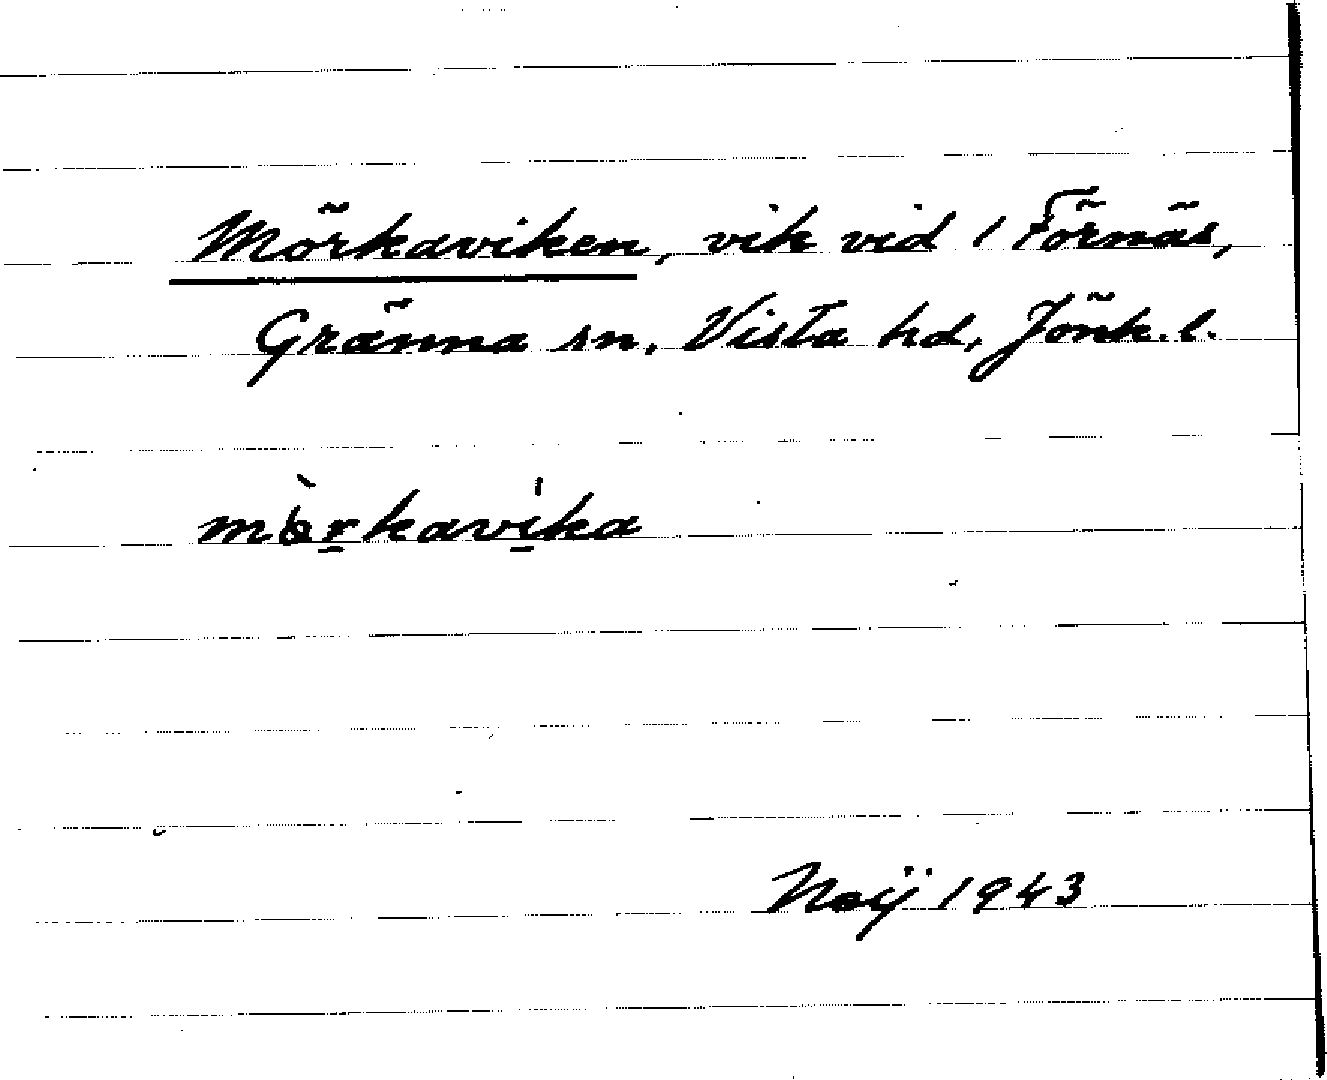 Mörkaviken, vik vid / Förnäs,
Gränna sn, Vista hd, Jönk. l.
mòrkavika
Neij 1943